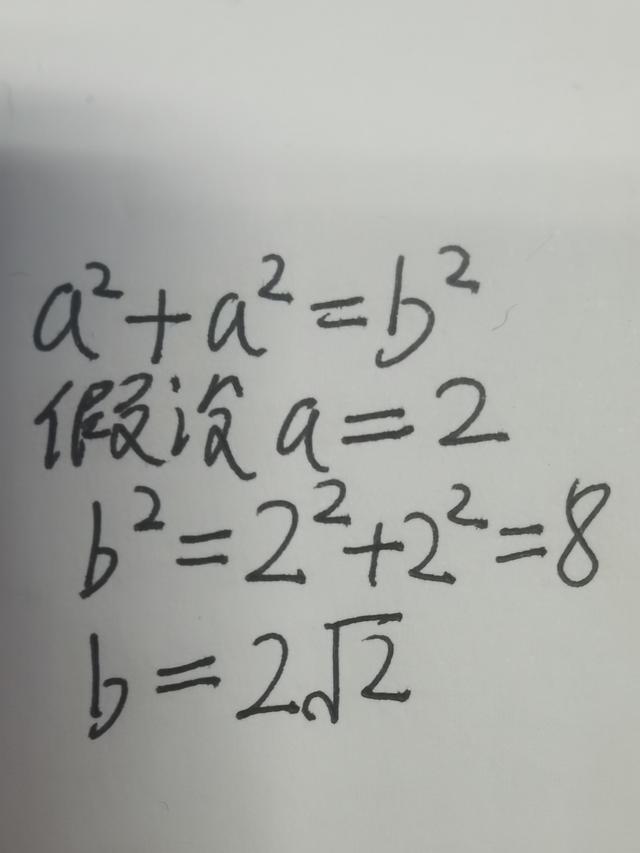 a²+a²=b²
假设a=2
b²=2²+2²=8
b=2√2